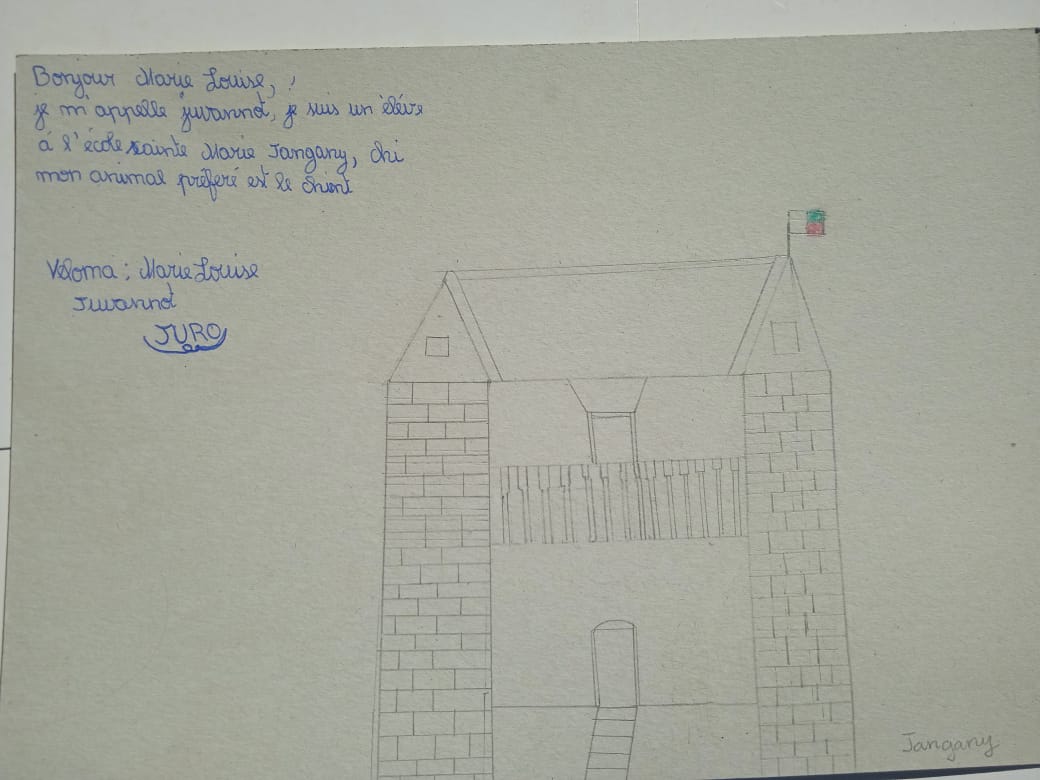 Bonjour Marie Louise,
je m'appelle juvannot, je suis un élève
á l'école sainte Marie Jangany,
mon animal préferé est le
Veloma : Marie Louise
Juvannot
JURO
Jangany